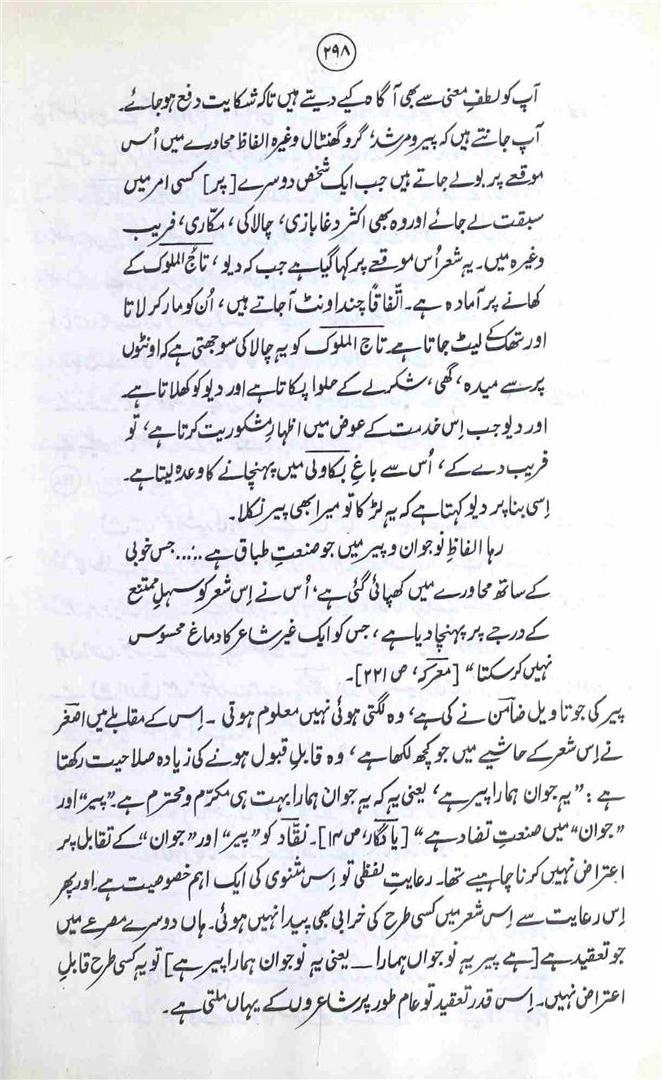 ۲۹۸
آپ کو لطفِ معنی سے بھی آگاہ کیے دیتے ہیں تاکہ شکایت دفع ہو جائے۔
آپ جانتے ہیں کہ پیر و مرشد، گرو گھنٹال وغیرہ الفاظ محاورے میں اُس
موقعے پر بولے جاتے ہیں جب ایک شخص دوسرے [پر] کسی امر میں
سبقت لے جائے اور وہ بھی اکثر دغابازی، چالاکی، مکّاری، فریب
وغیرہ میں۔ یہ شعر اُس موقعے پر کہا گیا ہے جب کہ دیو، تاج الملوک کے
کھانے پر آمادہ ہے۔ اتّفاقاً چند اونٹ آجاتے ہیں، اُن کو مار کر لاتا
اور تھک کے لیٹ جاتا ہے۔ تاج الملوک کو یہ چالاکی سوجھتی ہے کہ اونٹوں
پر سے میدہ، گھی، شکر لے کے حلوا پکاتا ہے اور دیو کو کھلاتا ہے۔
اور دیو جب اِس خدمت کے عوض میں اظہارِ مشکوریت کرتا ہے، تو
فریب دے کے، اُس سے باغِ بکاولی میں پہنچانے کا وعدہ لیتا ہے۔
اِسی بنا پر دیو کہتا ہے کہ یہ لڑکا تو میرا بھی پیر نکلا۔
رہا الفاظِ نوجوان و پیر میں جو صنعتِ طباق ہے ..... جس خوبی
کے ساتھ محاورے میں کھپائی گئی ہے، اُس نے اِس شعر کو سہلِ ممتنع
کے درجے پر پہنچا دیا ہے، جس کو ایک غیر شاعر کا دماغ محسوس
نہیں کر سکتا“ [معرکہ، ص ۲۲۱]۔
پیر کی جو تاویل ضامن نے کی ہے، وہ لگتی ہوئی نہیں معلوم ہوتی۔ اِس کے مقابلے میں اصغر
نے اِس شعر کے حاشیے میں جو کچھ لکھا ہے، وہ قابلِ قبول ہونے کی زیادہ صلاحیت رکھتا
ہے: ”یہ جوان ہمارا پیر ہے، یعنی یہ کہ یہ جوان ہمارا بہت ہی مکرّم و محترم ہے۔ ”پیر“ اور
”جوان“ میں صنعتِ تضاد ہے“ [یادگار، ص ۱۴]۔ نقّاد کو ”پیر“ اور ”جوان“ کے تقابل پر
اعتراض نہیں کرنا چاہیے تھا۔ رعایتِ لفظی تو اِس مثنوی کی ایک اہم خصوصیت ہے۔ اور پھر
اِس رعایت سے اِس شعر میں کسی طرح کی خرابی بھی پیدا نہیں ہوئی۔ ہاں دوسرے مصرعے میں
جو تعقید ہے [ہے پیر یہ نوجواں ہمارا ــــ یعنی یہ نوجوان ہمارا پیر ہے] تو یہ کسی طرح قابلِ
اعتراض نہیں۔ اِس قدر تعقید تو عام طور پر شاعروں کے یہاں ملتی ہے۔